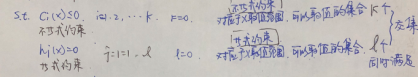 s.t. Ci(x)≤0, i=1.2,…k. k=0. 不等式约束 对应于x取值范围,可以取值的集合 k个
不等式约束
hj(x)=0 j=1…l l=0. 等式约束 对应于x取值范围,可以取值的集合 l个 交集
等式约束 同时满足